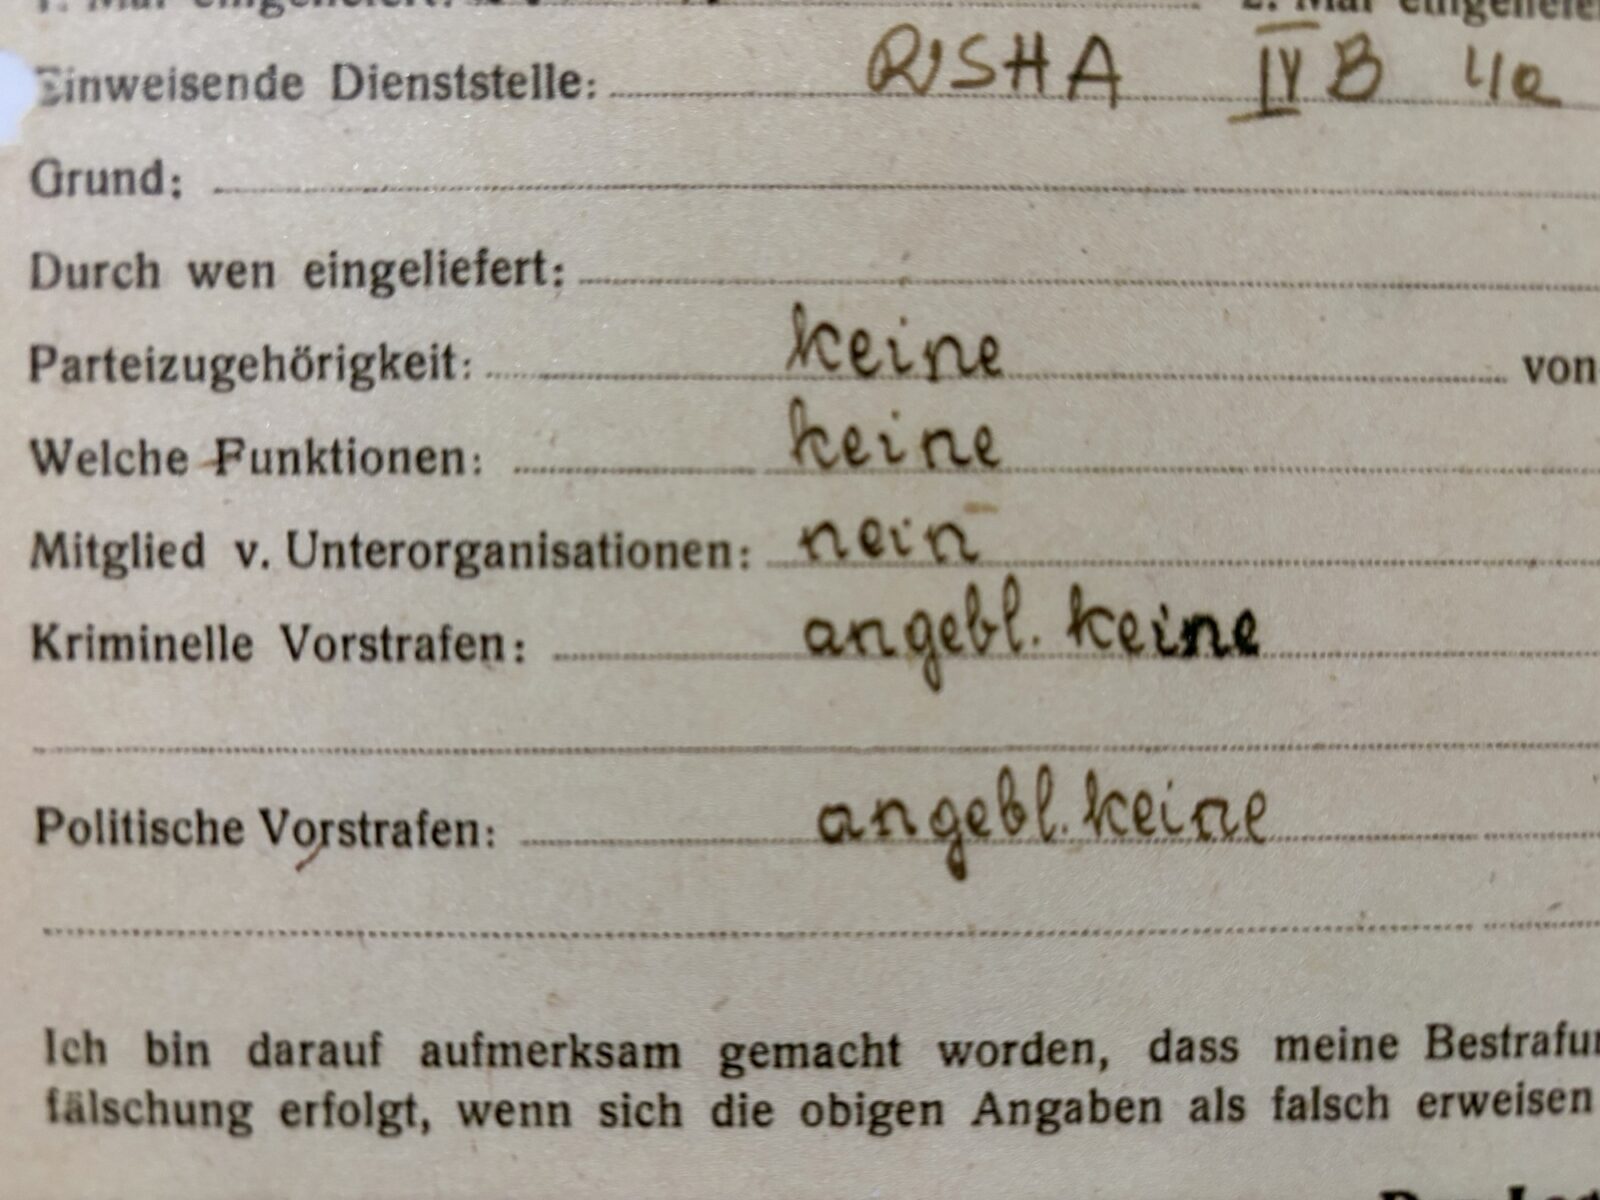 1. Mal eingeliefert: 2. Mal eingeliefe
Einweisende Dienststelle: RSHA IV B 4a
Grund:
Durch wen eingeliefert:
Parteizugehörigkeit: keine von
Welche Funktionen: keine
Mitglied v. Unterorganisationen: nein
Kriminelle Vorstrafen: angebl. keine
Politische Vorstrafen: angebl. keine
Ich bin darauf aufmerksam gemacht worden, dass meine Bestrafun
fälschung erfolgt, wenn sich die obigen Angaben als falsch erweisen